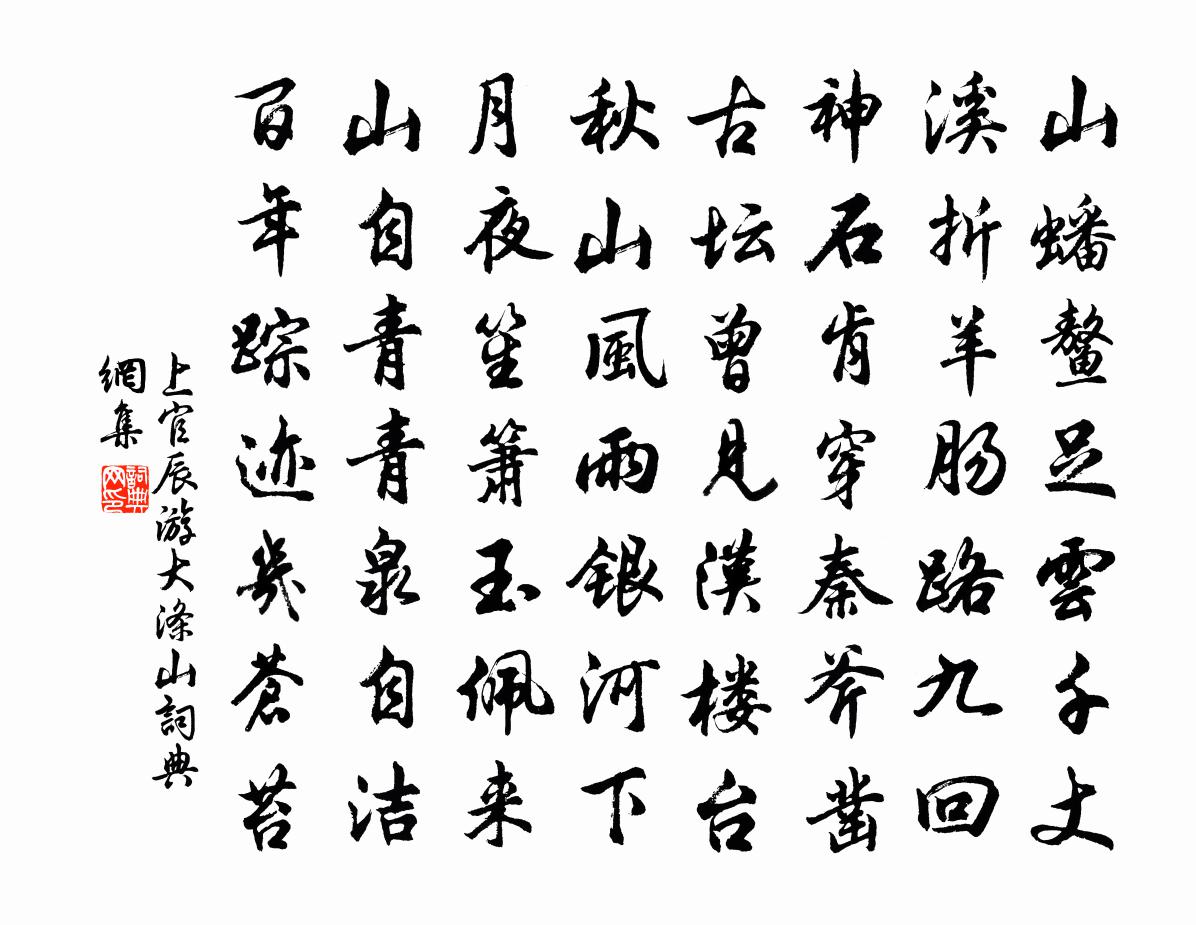 山蟠鳌足雲千丈
溪折羊肠路九回
神石肯穿秦斧凿
古坛曾見漢楼台
秋山風雨銀河下
月夜笙簫玉佩来
山自青青泉自洁
百年踪迹幾蒼苔
上官辰游大涤山詞典
網集
詞典
网印